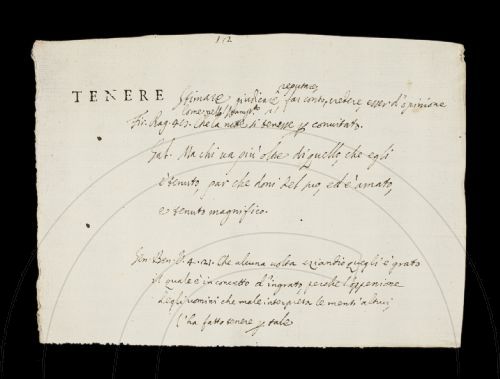 152
TENERE Stimare giudicare reputare, far conto, credere, esser d'opinione
Fir. Rag. che la si tenesse p convitata.
Gal. Ma chi va più oltre di quello, che egli
è tenuto, par che doni del suo, ed è amato,
e tenuto magnifico.
Sen. Ben. V. 4. 21. Che alcuna volta eziandio quegli è grato
il quale è in concetto d'ingrato, perché l'oppenione
degli uomini che male interpreta le menti altrui,
l'ha fatto tenere p tale